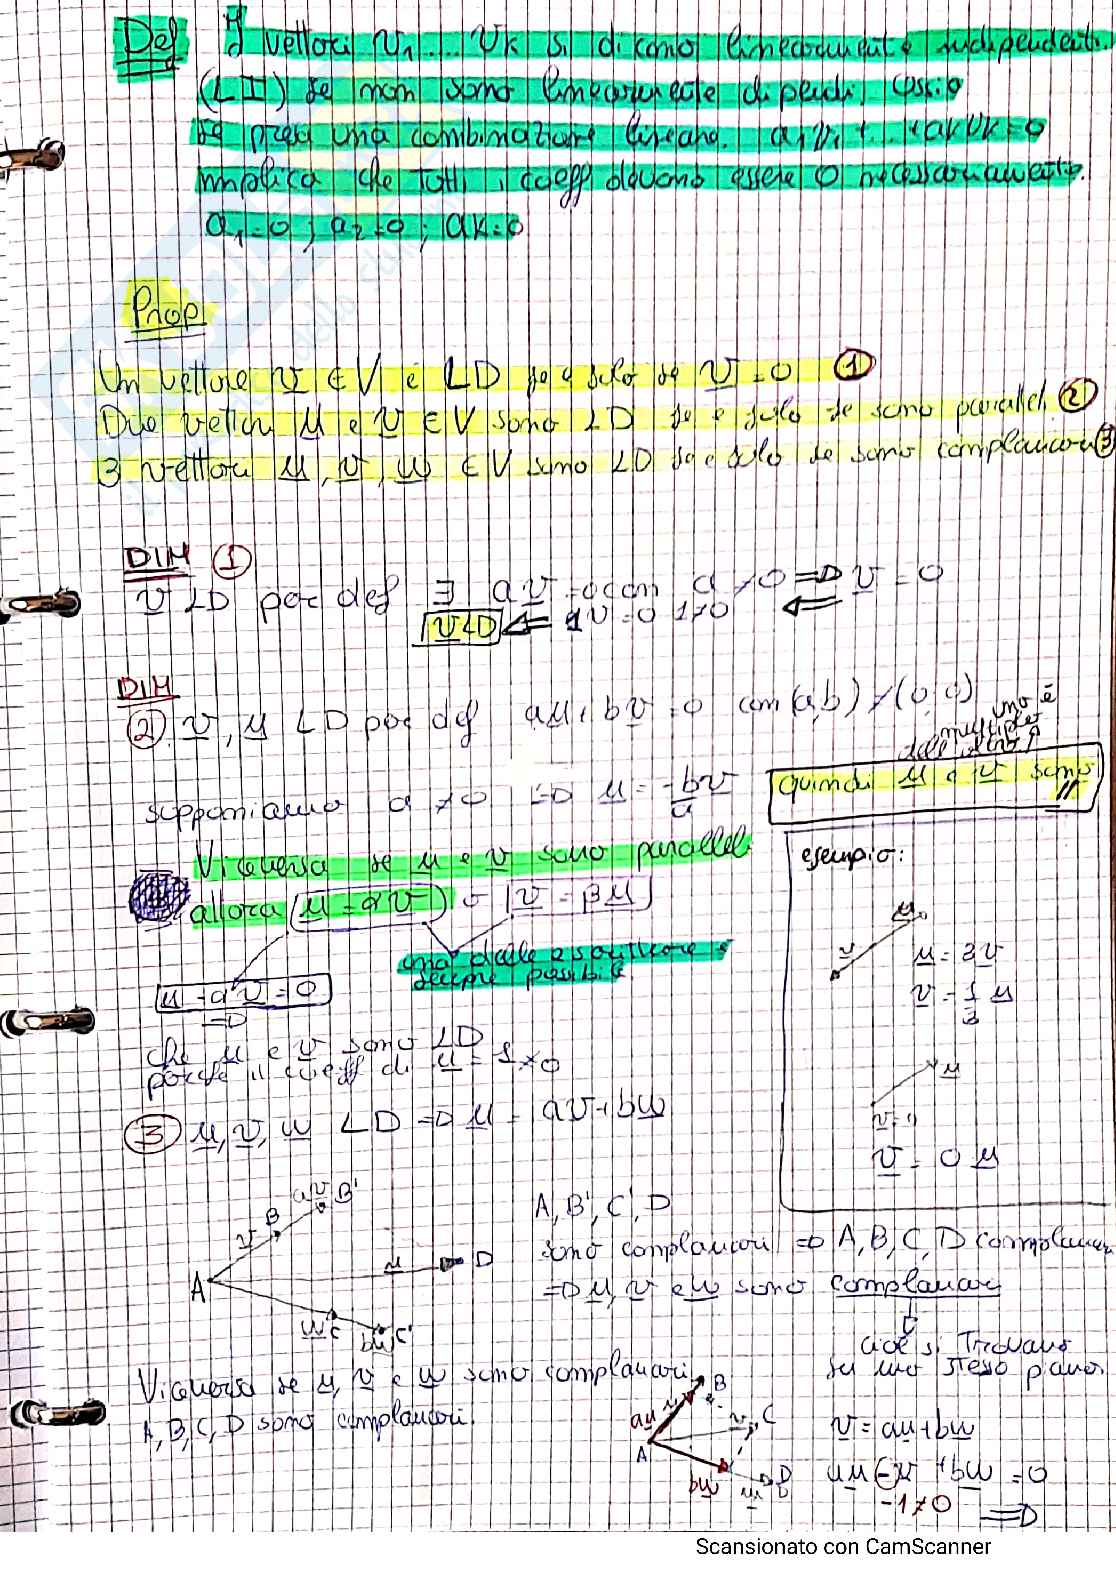 Def I vettori v1 .... vk si dicono linearmente indipendenti
(LI) se non sono linearmente dipendi, cossio
se presa una combinazione lineare. a1v1 + ... + akvk = 0
implica che tutti i coeff devono essere 0 necessariamente.
a1=0 ; a2=0 ; ak=0
Prop
Un vettore v ∈ V è LD se e solo se v = 0 ①
Due vettori u e v ∈ V sono LD se e solo se sono paralleli. ②
3 vettori u, v, w ∈ V sono LD se e solo se sono complanari ③
DIM ①
v LD per def ∃ av = 0 con a ≠ 0 => v = 0
v LD <= 1v = 0 1≠0 <=
DIM
② v, u LD per def au + bv = 0 con (a,b) ≠ (0,0)
uno è
multiplo
dell'altro
supponiamo a ≠ 0 => u = -b/a v
quindi u e v sono //
Viceversa se u e v sono paralleli
allora u = av o v = βu
una delle 2 scritture è
sempre possibile
u - av = 0
=>
che u e v sono LD
perché il coeff di u = 1 ≠ 0
esempio:
u
v
u = 3v
v = 1/3 u
u
v = 0 u
③ u, v, w LD => u = av + bw
av B'
B
v
A
u D
w C
bw C'
A, B', C', D
sono complanari => A, B, C, D complanari
=> u, v e w sono complanari
cioè si trovano
su uno stesso piano.
Viceversa se u, v e w sono complanari,
A, B, C, D sono complanari.
B
au u
v C
A
bw
D
v = au + bw
au - v + bw = 0
-1≠0
=>
Scansionato con CamScanner